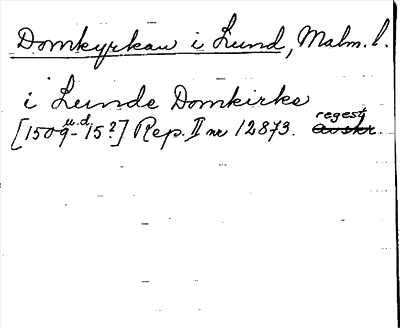 Domkyrkan i Lund, Malm. l.
i Lunde Domkirke
[1509 u.d. -15?] Rep. II nr 12873. regest
avskr.